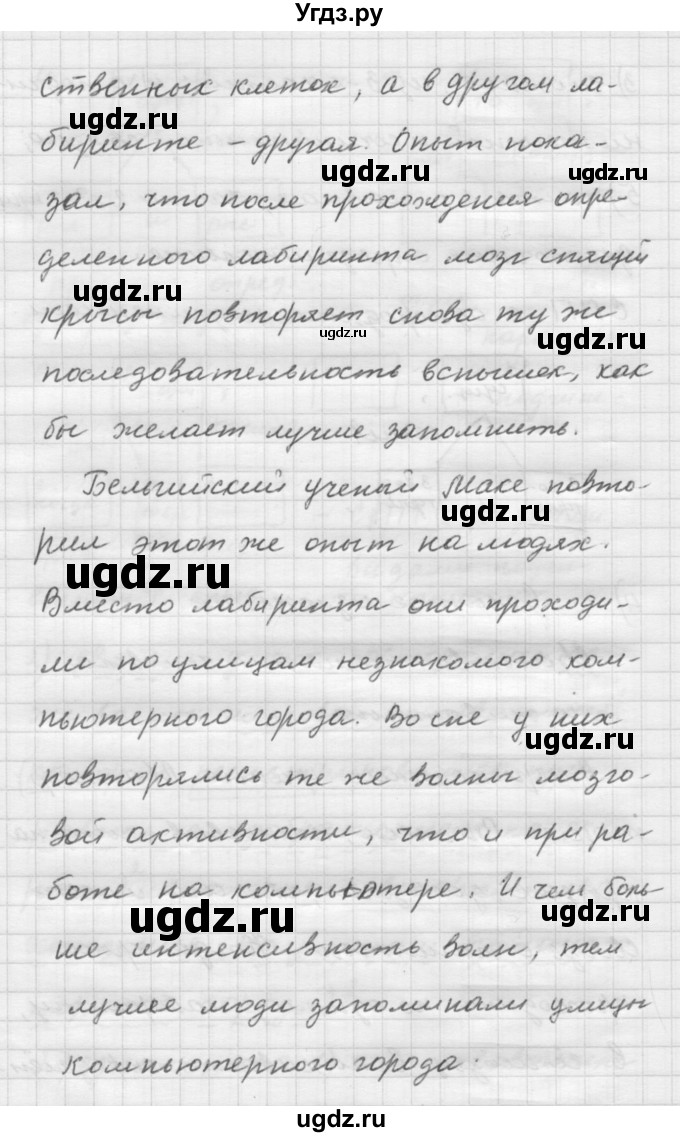 Угдз.ру
ственных клеток, а в другом ла-
ugdz.ru
биринте - другая. Опыт пока-
ugdz.ru
зал, что после прохождения опре-
деленного лабиринта мозг спящей
ugdz.ru
крысы повторяет снова ту же
ugdz.ru
ugdz.ru
последовательность вспышек, как
бы желает лучше запомнить.
Бельгийский ученый Маке повто-
ugdz.ru
рил этот же опыт на людях.
ugdz.ru
Вместо лабиринта они проходи-
ли по улицам незнакомого ком-
пьютерного города. Во сне у них
ugdz.ru
повторялись те же волны мозго-
вой активности, что и при ра-
боте на компьютере. И чем боль-
ugdz.ru
ugdz.ru
ше интенсивность волн, тем
лучше люди запоминали улицы
компьютерного города.
ugdz.ru